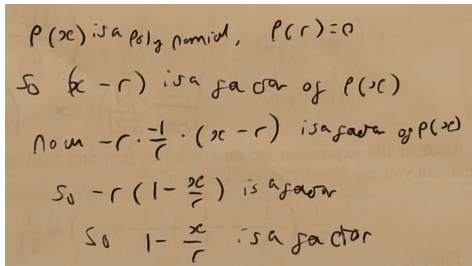 P(x) is a polynomial, P(r)=0
So (x - r) is a factor of P(x)
now -r · -1/r · (x - r) is a factor of P(x)
So -r (1 - x/r) is a factor
So 1 - x/r is a factor